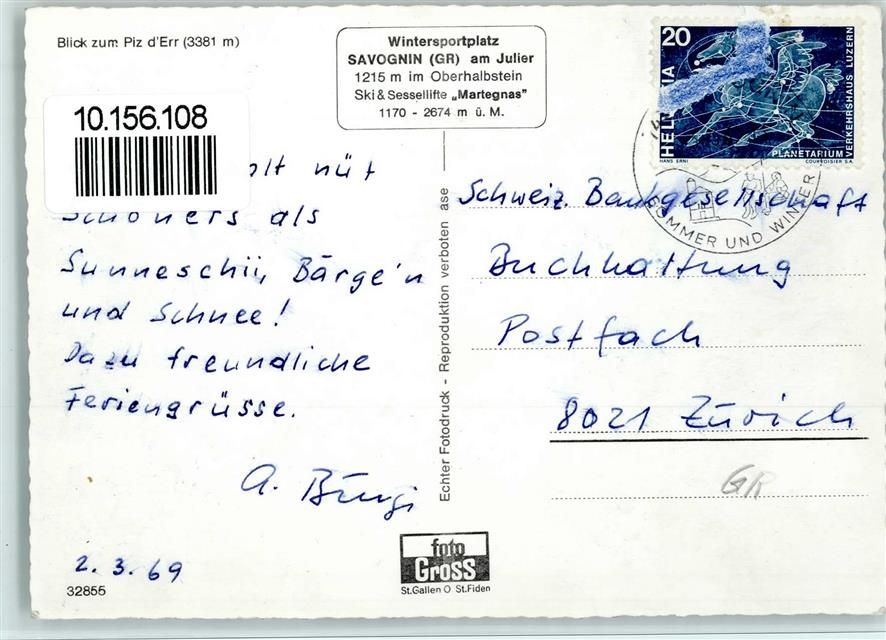 Blick zum Piz d'Err (3381 m)
Wintersportplatz
SAVOGNIN (GR) am Julier
1215 m im Oberhalbstein
Ski & Sessellifte „Martegnas"
1170 - 2674 m ü. M.
10.156.108
nüt
Schöners als
Sunneschii, Bärge'n
und Schnee!
Dazu freundliche
Feriengrüsse.
A. Bürgi
2. 3. 69
32855
Echter Fotodruck - Reproduktion verboten ase
foto
Gross
St.Gallen O St.Fiden
20
HELVETIA
PLANETARIUM
VERKEHRSHAUS LUZERN
HANS ERNI
COURVOISIER S.A.
SOMMER UND WINTER
Schweiz. Bankgesellschaft
Buchhaltung
Postfach
8021 Zürich
GR